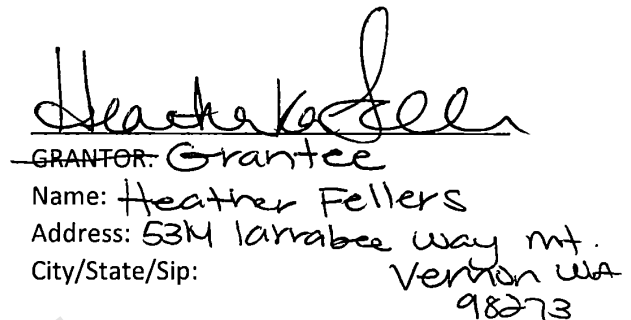 Heather
GRANTOR: Grantee
Name: Heather Fellers
Address: 5314 larrabee way mt.
City/State/Sip: Vernon WA
98273